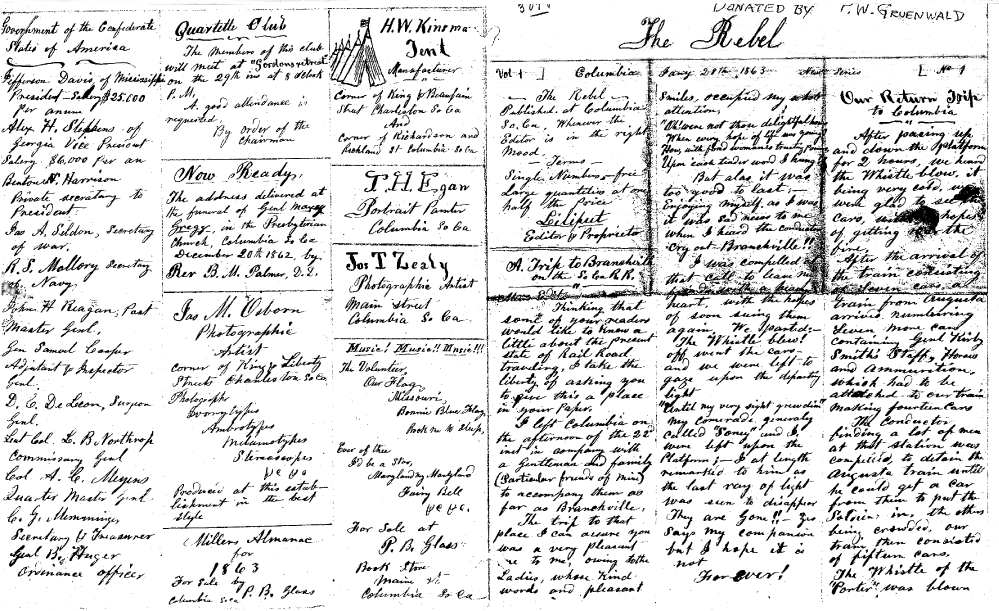 Government of the Confederate
States of America
Jefferson Davis, of Mississippi
President - Salery $25.000
Per annum
Alex H. Stephens of
Georgia Vice Presient
Salery $6.000 Per an
Benton N. Harrison
Private secratary to
President
Jas A. Seldon, Secretary
of war.
R. S. Mallory Secretary
of Navy
John H Reagan, Post
Master Genl.
Gen Samuel Cooper
Adjutant & Inspector
Genl.
D. C. DeLeon, Surgeon
Genl.
Leut Col. L. B. Northrop
Commissary Genl
Col A. C. Meyers
Quarter Master Genl
C. G. Memminger
Secretary & Treasurer
Genl B. Huger
Ordinance officer
Quartette Club
The Members of this club
will meet at "Gordons retreat"
on the 29th ins at 8 o'clock
P. M,
A good attendance is
requested,
By order of the
Chairman
Now Ready,
The address delivered at
the funeral of Genl Maxcy
Gregg, in the Presbyterian
Church, Columbia So Ca
December 20th 1862, by
Rev B. M. Palmer, D. D.
Jas M. Osborn
Photographic
Artist
corner of King & Liberty
Streets Charleston So Ca
Photographs
Ivorytypes
Ambrotypes
Melanotypes
Stereoscopes
&c &c
Produced at this estab-
lishment in the best
style
Millers Almanac
for
1863
For Sale by
P. B. Glass
Columbia So Ca
H. W. Kinsma
Tent
Manufacturer
Corner of King & Beaufain
Street Charleston So Ca
And
Corner of Richardson and
Richland St. Columbia So Ca
T. H. Egan
Portrait Painter
Columbia So Ca
Jos T Zealy
Photographic Artist
Main street
Columbia So Ca
Music! Music!! Music!!!
The Volunteer,
Our Flag,
Missouri,
Bonnie Blue Flag,
Rock me to Sleep,
Ever of thee
I'd be a Star,
Maryland my Maryland
Fairy Bell
&c &c.
For Sale at
P. B. Glass
Book Store
Main st
Columbia So Ca
DONATED BY T. W. GRUENWALD
The Rebel
Vol 1 Columbia Jany 28th, 1863 New Series No 1
The Rebel
Published at Columbia
So, Ca, Whenever the
Editor is in the right
Mood.
- Terms -
Single Numbers - free
Large quantities at one
half the price
Lilliput
Editor & Proprietor
A Trip to Branchville
on the So. Ca. R. R.
Thinking that
some of your readers
would like to know a
little about the present
state of Rail Road
traveling, I take the
liberty of asking you
to give this a place
in your Paper.
I left Columbia on
the afternoon of the 22
inst in company with
a Gentleman and family
(Particular friends of mine)
to accompany them as
far as Branchville,
The trip to that
place I can assure you
was a very pleasant
one to me, owing to the
Ladies, whose kind
words and pleasant
Smiles, occupied my whole
attention,
Oh! were not thou delightful
When every hope of life was young
How, with fond womans
Upon each tender word I hung
But alas it was
too good to last; -
Enjoying myself, as I was
it was sad news to me
when I heard the conductor
Cry out Branchville!!
I was compelled at
that call to leave my
friends with a heavy
heart, with the hopes
of soon seeing them
again. We parted; -
The Whistle blew!
off went the cars -
and we were left to
gaze upon the departing
light
"Until my very sight grew dim"
my comrade, generaly
called "Tony" and I
were left upon the
Platform; - I at length
remarked to him as
the last ray of light
was seen to disappear
They are Gone!! - Yes
Says my companion
but I hope it is
not
For ever!
Our Return Trip
to Columbia
After pasing up
and down the platform
for 2 hours, we heard
the Whistle blow, it
being very cold, we
were glad to see the
Cars, hopes
of getting the
fire,
After the arrival of
the train consisting
of Seven cars a
train from Augusta
arrived, numbering
Seven more cars
containing Genl Kirby
Smiths Staff, Horses
and Ammunition,
which had to be
attached to our train
making fourteen cars
The Conductor
finding a lot of men
at that station was
compelled, to detain the
Augusta train until
he could get a car
from them to put the
Soldiers in, the others
being crowded. our
train then consisted
of fifteen cars.
The Whistle of the
"Porter" was blown